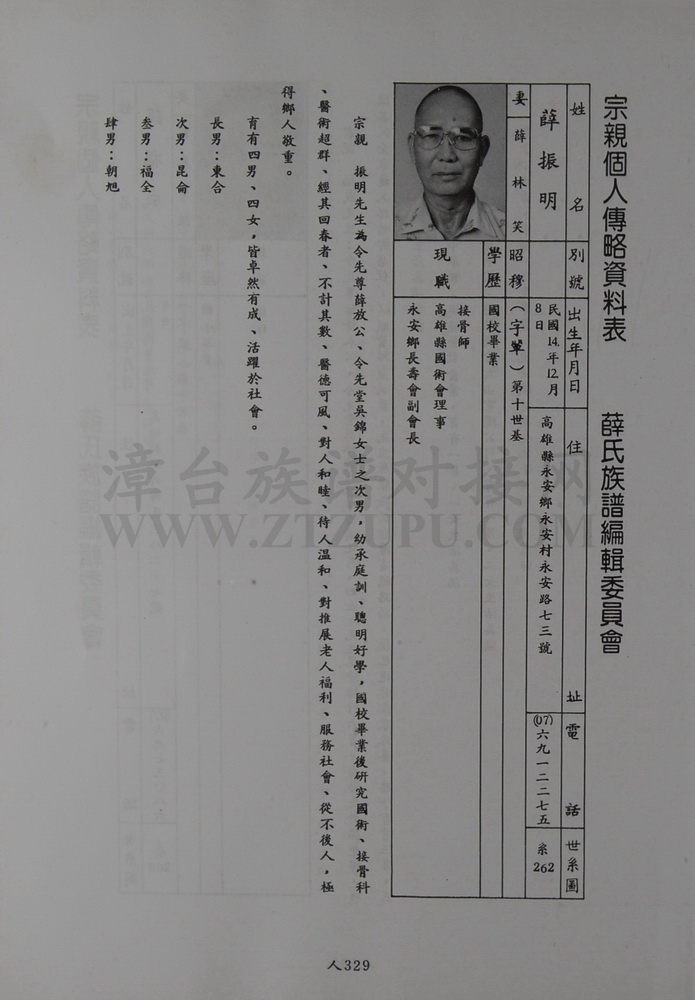 宗親個人傳略資料表　薛氏族譜編輯委員會
姓名　別號　出生年月日　住址　電話　世系圖
薛振明　民國14年12月8日　高雄縣永安鄉永安村永安路七三號　(07)六九一二二七五　系262
妻　薛林笑　昭穆　(字輩)第十世基
學歷　國校畢業
現職　接骨師
高雄縣國術會理事
永安鄉長壽會副會長
宗親　振明先生為令先尊薛放公、令先堂吳錦女士之次男，幼承庭訓、聰明好學，國校畢業後研究國術、接骨科
、醫術超群、經其回春者、不計其數、醫德可風、對人和睦、待人溫和、對推展老人福利、服務社會、從不後人，極
得鄉人敬重。
育有四男、四女，皆卓然有成、活躍於社會。
長男：東合
次男：昆侖
叁男：福全
肆男：朝旭
人329
漳台族谱对接网
WWW.ZTZUPU.COM